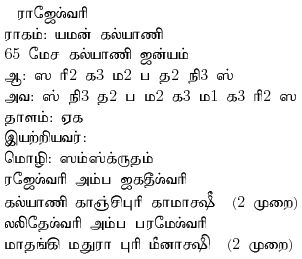 ராஜேஶ்வரி
ராகம்: யமன் கல்யாணி
65 மேச கல்யாணி ஜன்யம்
ஆ: ஸ ரி2 க3 ம2 ப த2 நி3 ஸ்
அவ: ஸ் நி3 த2 ப ம2 க3 ம1 க3 ரி2 ஸ
தாளம்: ஏக
இயற்றியவர்:
மொழி: ஸம்ஸ்க்ருதம்
ரஜேஶ்வரி அம்ப ஜகதீஶ்வரி
கல்யாணி காஞ்சிபுரி காமாக்ஷீ (2 முறை)
லலிதேஶ்வரி அம்ப பரமேஶ்வரி
மாதங்கி மதுரா புரி மீனாக்ஷீ (2 முறை)